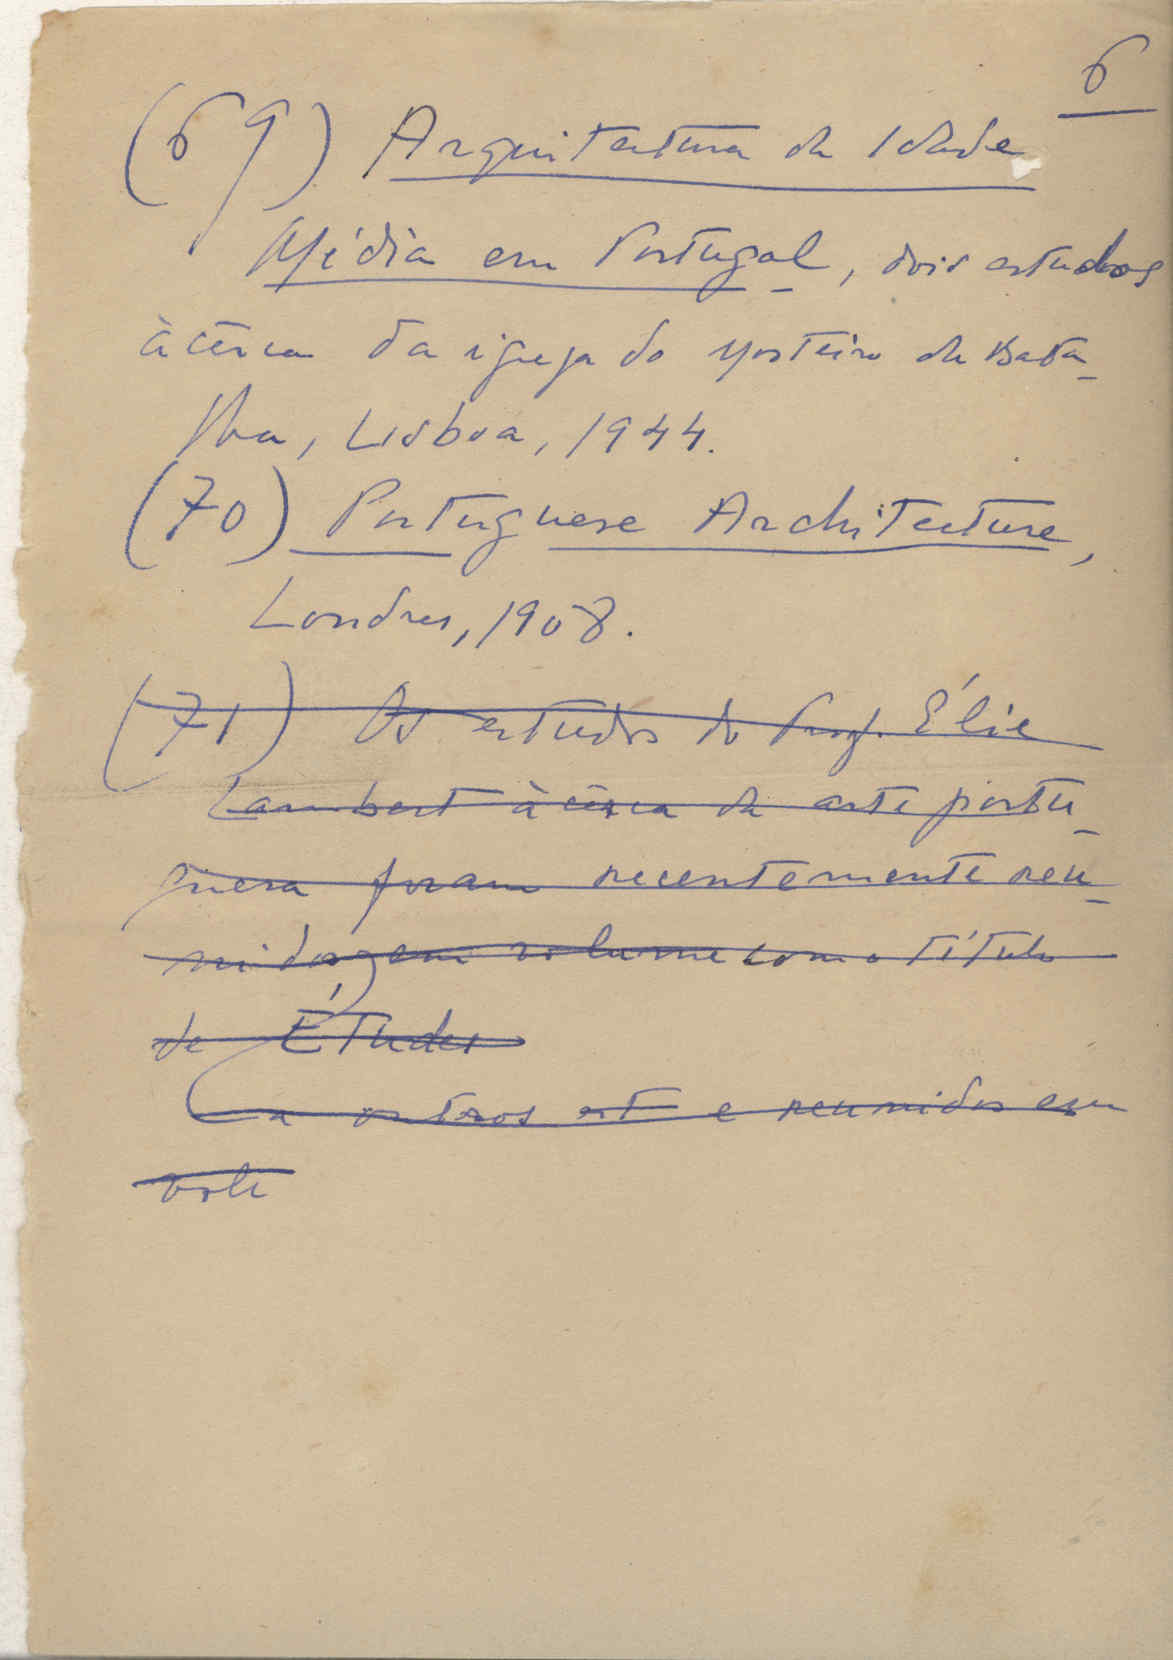 6
(69) Arquitectura da Idade
Média em Portugal, dois estudos
àcêrca da igreja do Mosteiro da Bata-
lha, Lisboa, 1944.
(70) Portuguese Architecture,
Londres, 1908.
(71) Os estudos do Prof. Élie
Lambert àcêrca da arte portu-
guesa foram recentemente reu-
nidos em volume com o título
de Études
a outros est e reunidos em